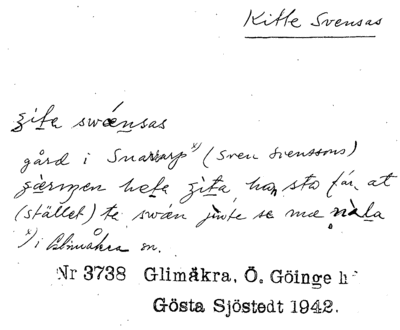 Kitte Svensas
ʒita swænsas
gård i Snararp x) (Sven Svenssons)
heta ʒita han sto får at
(stället) te swæn jinte se mæ nåla
x) i Glimåkra sn.
Nr 3738 Glimåkra, Ö. Göinge h
Gösta Sjöstedt 1942.